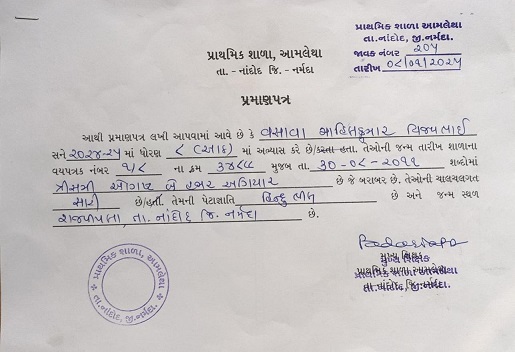 પ્રાથમિક શાળા આમલેથા
તા.નાંદોદ, જી.નર્મદા.
જાવક નંબર ૨૦૫
તારીખ ૦૮/૦૧/૨૦૨૫
પ્રાથમિક શાળા, આમલેથા
તા. - નાંદોદ જિ. - નર્મદા
પ્રમાણપત્ર
આથી પ્રમાણપત્ર લખી આપવામાં આવે છે કે વસાવા વિજયભાઈ
સને ૨૦૨૪-૨૫ માં ધોરણ ૮ (આઠ) માં અભ્યાસ કરે છે/કરતા હતા. તેઓની જન્મ તારીખ શાળાના
વયપત્રક નંબર ૧/૮ ના ક્રમ ૩૪૮૮ મુજબ તા. ૩૦-૦૮-૨૦૧૧ શબ્દોમાં
ત્રીસમી ઓગષ્ટ બે હજાર અગિયાર છે જે બરાબર છે. તેઓની ચાલચલગત
સારી છે/હતી. તેમની પેટાજ્ઞાતિ હિન્દુ ભીલ છે અને જન્મ સ્થળ
રાજપીપલા, તા. નાંદોદ જિ. નર્મદા છે.
મુખ્ય શિક્ષક
પ્રાથમિક શાળા આમલેથા
તા.નાંદોદ, જી.નર્મદા.
પ્રાથમિક શાળા, આમલેથા
તા.નાંદોદ, જી.નર્મદા.